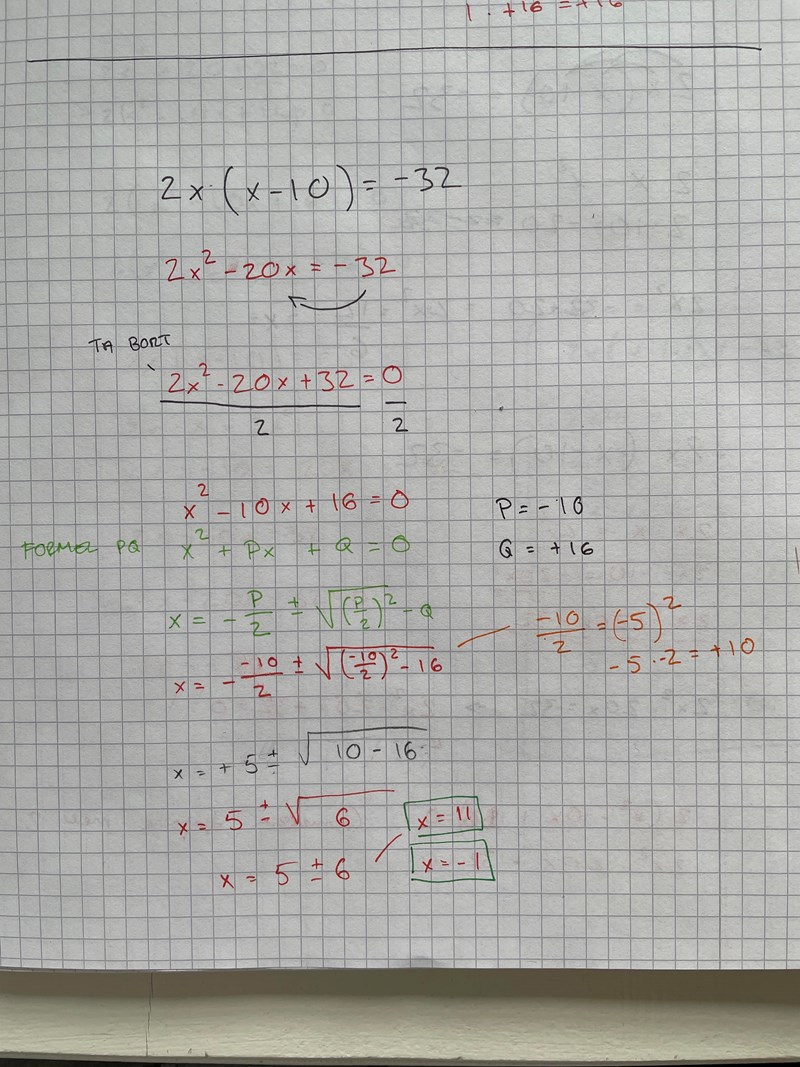 1 · +16 = +16
2x · (x-10) = -32
2x² - 20x = -32
TA BORT
2x² - 20x + 32 = 0
2 2
x² - 10x + 16 = 0 P = -10
FORMEL PQ x² + Px + Q = 0 Q = +16
x = - P/2 ± √(P/2)² - Q
x = - -10/2 ± √(-10/2)² - 16 -10/2 = (-5)²
-5 · -2 = +10
x = + 5 ± √10 - 16
x = 5 ± √6 x = 11
x = 5 ± 6 x = -1